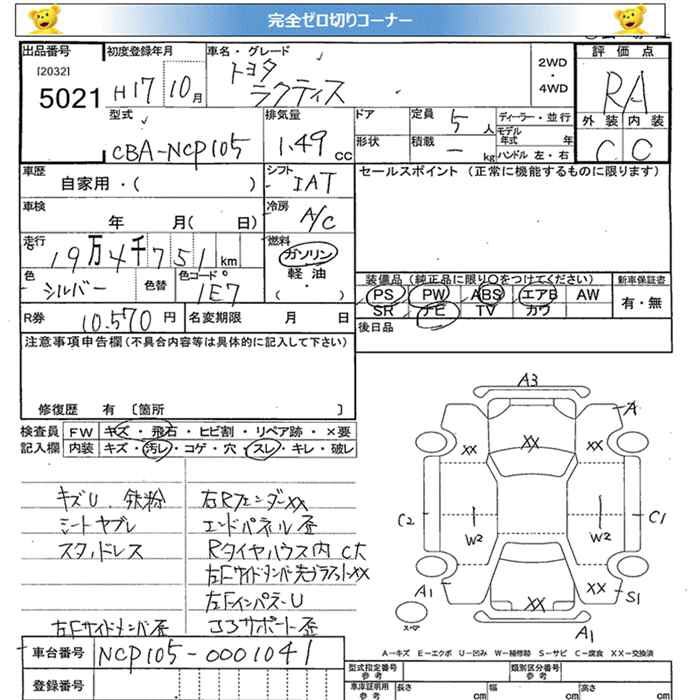 完全ゼロ切りコーナー
出品番号 初度登録年月 車名・グレード 評価点
[2032] トヨタ 2WD
5021 H17 10月 ラクティス ・ RA
4WD
型式 排気量 ドア 定員 5人 ディーラー・並行 外装 内装
CBA-NCP105 1.49cc 形状 積載 ー kg モデル年式 年 C C
ハンドル 左・右
車歴 シフト セールスポイント (正常に機能するものに限ります)
自家用・( ) IAT
車検 冷房
年 月( 日) A/C
走行 燃料
19万4千751km ガソリン
色 色替 色コード 軽油 装備品(純正品に限り○をつけてください) 新車保証書
シルバー 1E7 ・( ) PS PW ABS エアB AW 有・無
R券 10.570円 名変期限 月 日 SR ナビ TV カワ
後日品
注意事項申告欄(不具合内容等は具体的に記入して下さい)
修復歴 有 〔箇所 〕
検査員 FW キズ・飛石・ヒビ割・リペア跡・×要
記入欄 内装 キズ・汚レ・コゲ・穴・スレ・キレ・破レ
キズU. 鉄粉 右Rフェンダーxx
シートヤブレ エンドパネル歪
スタッドレス Rタイヤハウス内 C大
左Fサイドメンバー先プラスト-xx
左FインパネU
左Fサイドメンバ歪 コアサポート歪
A3
A
XX XX XX
C2 W2 W2 C1
A1 XX XX S1
スペア A1
A―キズ E―エクボ U―凹み W―補修跡 S―サビ C―腐食 XX―交換済
車台番号 NCP105-0001041
登録番号
型式指定番号 参考 類別区分番号 参考
車庫証明用 参考 長さ cm 幅 cm 高さ cm